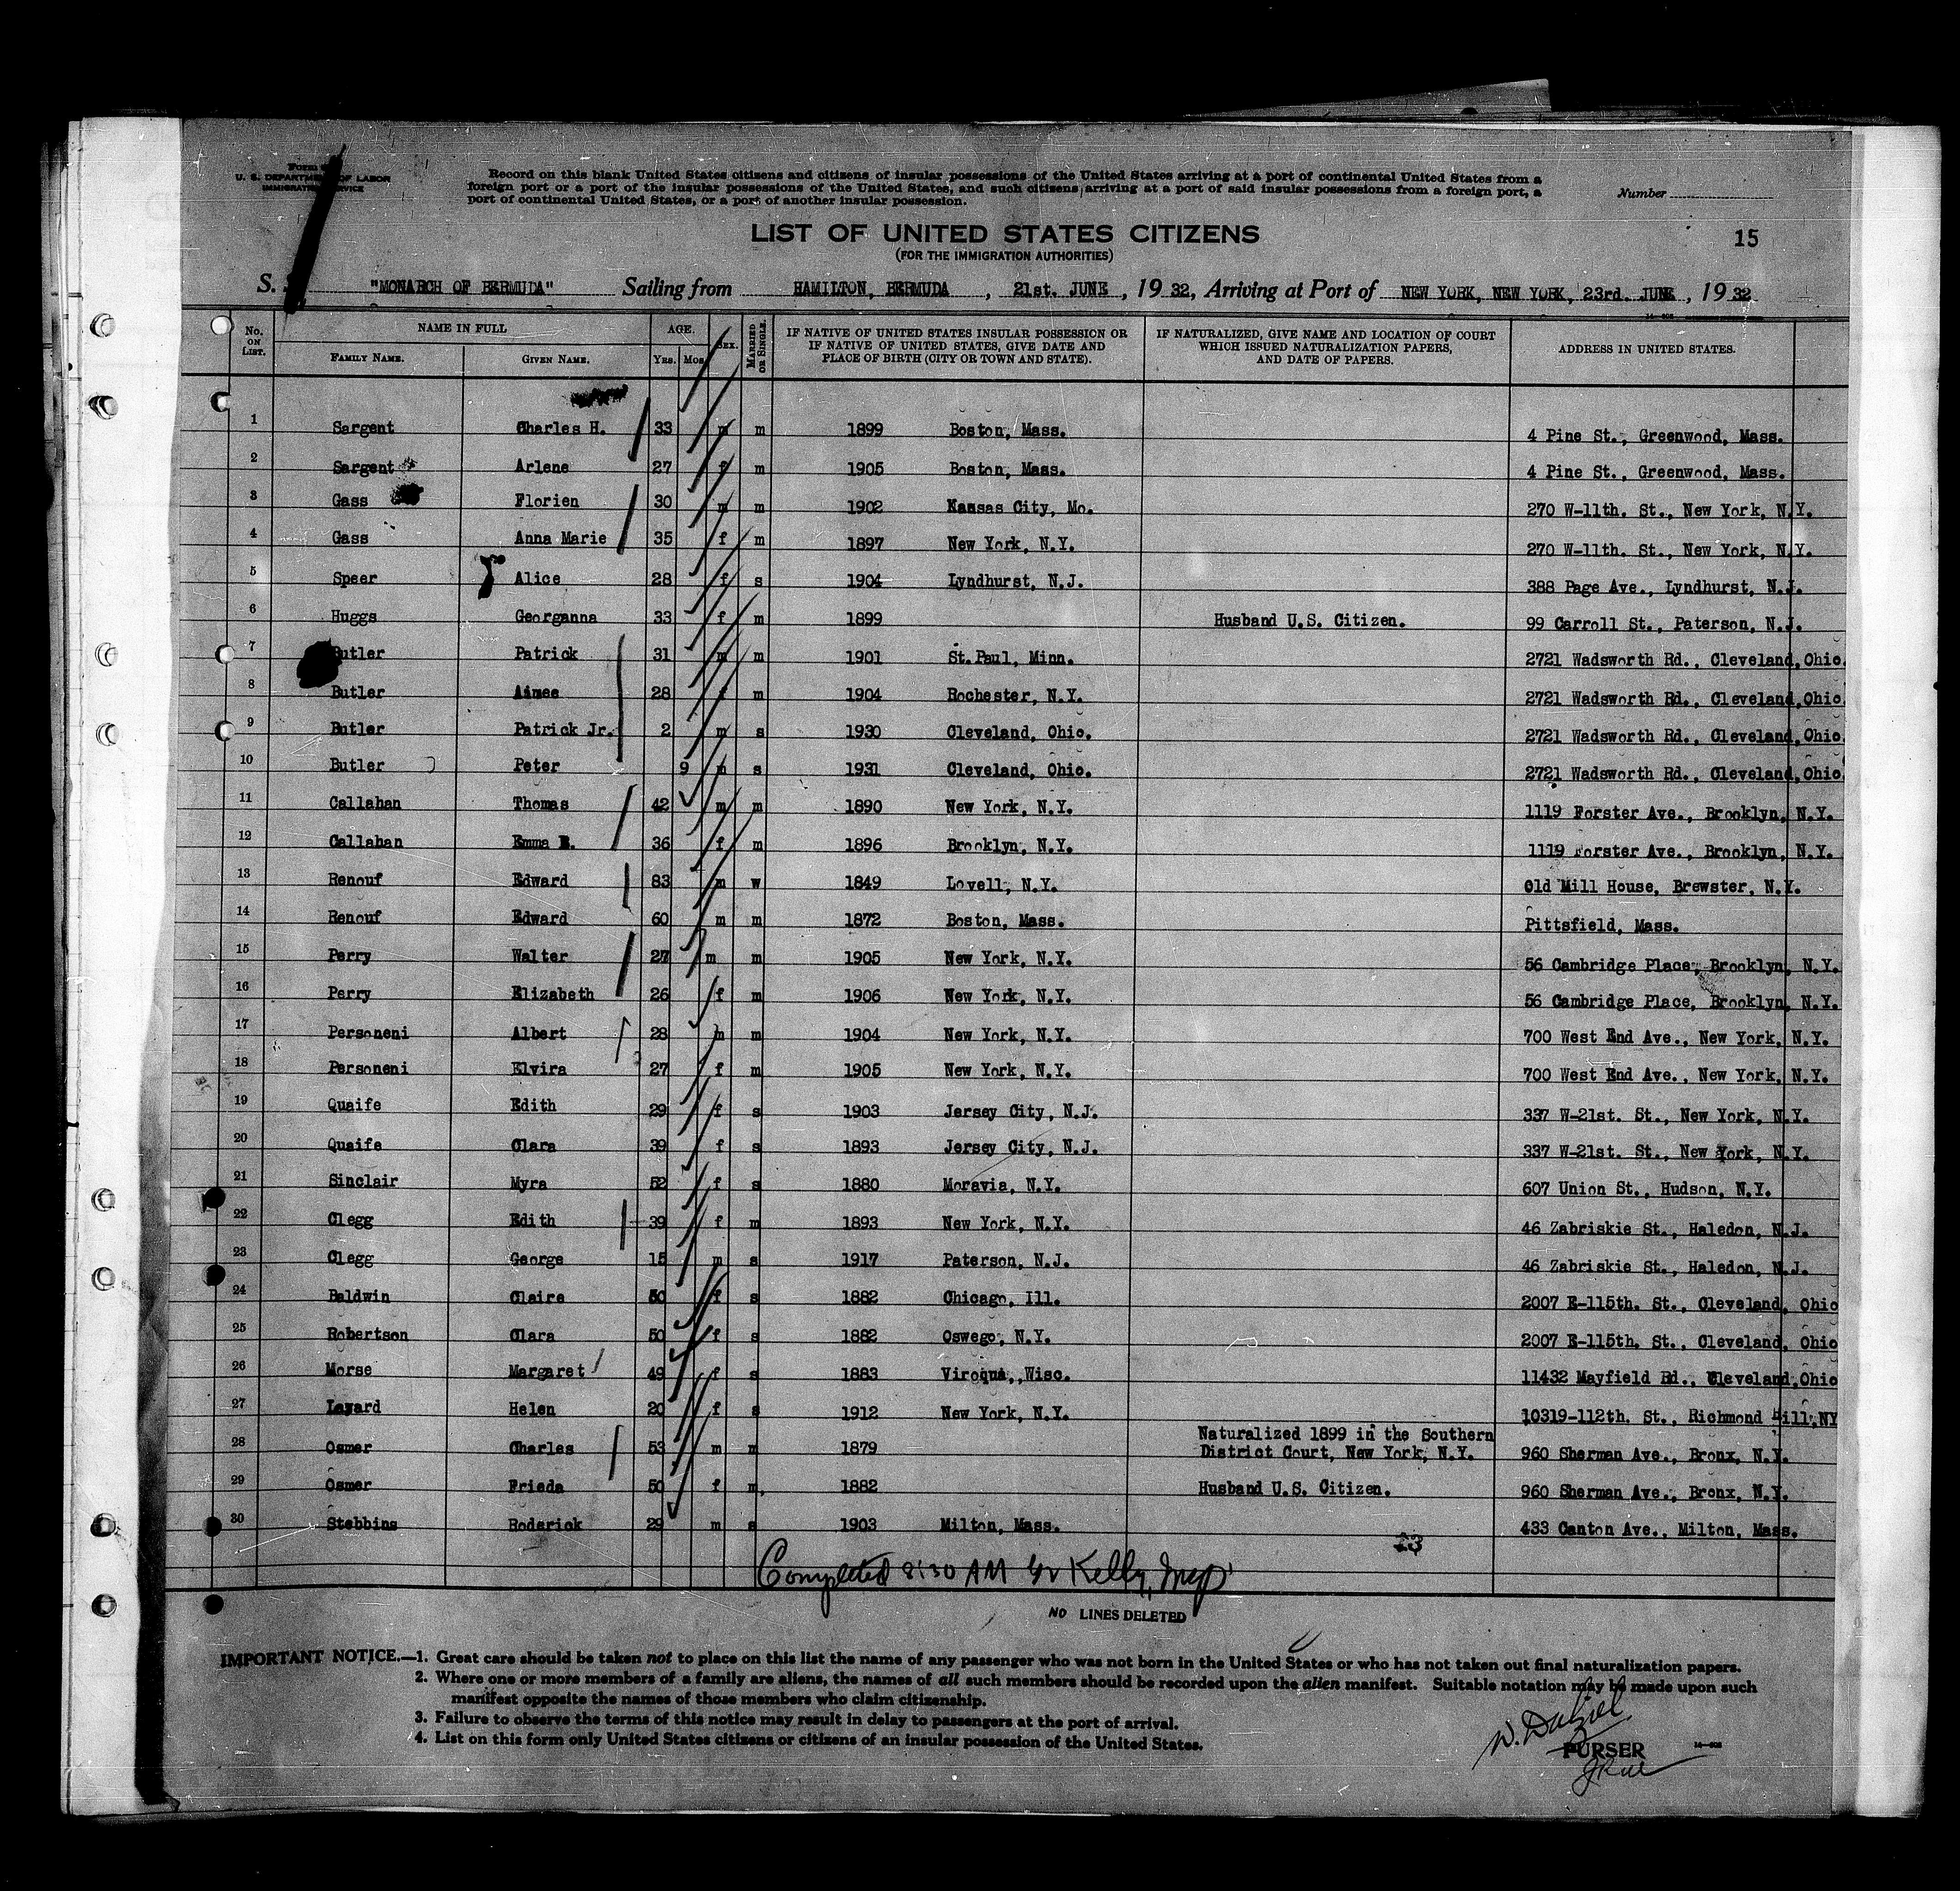 U. S. DEPARTMENT OF LABOR
IMMIGRATION SERVICE
Record on this blank United States citizens and citizens of insular possessions of the United States arriving at a port of continental United States from a
foreign port or a port of the insular possessions of the United States, and such citizens arriving at a port of said insular possessions from a foreign port, a
port of continental United States, or a port of another insular possession.
Number
LIST OF UNITED STATES CITIZENS
15
(FOR THE IMMIGRATION AUTHORITIES)
S. S. "MONARCH OF BERMUDA" Sailing from HAMILTON, BERMUDA, 21st. JUNE, 1932, Arriving at Port of NEW YORK, NEW YORK, 23rd. JUNE, 1932
No. ON LIST. NAME IN FULL FAMILY NAME. GIVEN NAME. AGE. YRS. MOS. SEX. MARRIED OR SINGLE. IF NATIVE OF UNITED STATES INSULAR POSSESSION OR IF NATIVE OF UNITED STATES, GIVE DATE AND PLACE OF BIRTH (CITY OR TOWN AND STATE). IF NATURALIZED, GIVE NAME AND LOCATION OF COURT WHICH ISSUED NATURALIZATION PAPERS, AND DATE OF PAPERS. ADDRESS IN UNITED STATES.
1 Sargent Charles H. 33 m m 1899 Boston, Mass. 4 Pine St., Greenwood, Mass.
2 Sargent Arlene 27 f m 1905 Boston, Mass. 4 Pine St., Greenwood, Mass.
3 Gass Florien 30 m m 1902 Kansas City, Mo. 270 W-11th. St., New York, N.Y.
4 Gass Anna Marie 35 f m 1897 New York, N.Y. 270 W-11th. St., New York, N.Y.
5 Speer Alice 28 f s 1904 Lyndhurst, N.J. 388 Page Ave., Lyndhurst, N.J.
6 Huggs Georganna 33 f m 1899 Husband U.S. Citizen. 99 Carroll St., Paterson, N.J.
7 Butler Patrick 31 m m 1901 St.Paul, Minn. 2721 Wadsworth Rd., Cleveland,Ohio.
8 Butler Aimee 28 f m 1904 Rochester, N.Y. 2721 Wadsworth Rd., Cleveland,Ohio.
9 Butler Patrick Jr. 2 m s 1930 Cleveland, Ohio. 2721 Wadsworth Rd., Cleveland,Ohio.
10 Butler Peter 9 m s 1931 Cleveland, Ohio. 2721 Wadsworth Rd., Cleveland,Ohio.
11 Callahan Thomas 42 m m 1890 New York, N.Y. 1119 Forster Ave., Brooklyn, N.Y.
12 Callahan Emma E. 36 f m 1896 Brooklyn, N.Y. 1119 Forster Ave., Brooklyn, N.Y.
13 Renouf Edward 83 m w 1849 Lovell, N.Y. Old Mill House, Brewster, N.Y.
14 Renouf Edward 60 m m 1872 Boston, Mass. Pittsfield, Mass.
15 Perry Walter 27 m m 1905 New York, N.Y. 56 Cambridge Place, Brooklyn, N.Y.
16 Perry Elizabeth 26 f m 1906 New York, N.Y. 56 Cambridge Place, Brooklyn, N.Y.
17 Personeni Albert 28 m m 1904 New York, N.Y. 700 West End Ave., New York, N.Y.
18 Personeni Elvira 27 f m 1905 New York, N.Y. 700 West End Ave., New York, N.Y.
19 Quaife Edith 29 f s 1903 Jersey City, N.J. 337 W-21st. St., New York, N.Y.
20 Quaife Clara 39 f s 1893 Jersey City, N.J. 337 W-21st. St., New York, N.Y.
21 Sinclair Myra 52 f s 1880 Moravia, N.Y. 607 Union St., Hudson, N.Y.
22 Clegg Edith 39 f m 1893 New York, N.Y. 46 Zabriskie St., Haledon, N.J.
23 Clegg George 15 m s 1917 Paterson, N.J. 46 Zabriskie St., Haledon, N.J.
24 Baldwin Claire 50 f s 1882 Chicago, Ill. 2007 E-115th. St., Cleveland, Ohio
25 Robertson Clara 50 f s 1882 Oswego, N.Y. 2007 E-115th. St., Cleveland, Ohio
26 Morse Margaret 49 f s 1883 Viroqua,,Wisc. 11432 Mayfield Rd., Cleveland,Ohio
27 Layard Helen 20 f s 1912 New York, N.Y. 10319-112th. St., Richmond Hill,NY
28 Osmer Charles 53 m m 1879 Naturalized 1899 in the Southern District Court, New York, N.Y. 960 Sherman Ave., Bronx, N.Y.
29 Osmer Frieda 50 f m. 1882 Husband U.S. Citizen. 960 Sherman Ave., Bronx, N.Y.
30 Stebbins Roderick 29 m s 1903 Milton, Mass. 433 Canton Ave., Milton, Mass.
23
Completed 8:30 AM Kelly, Insp
NO LINES DELETED
IMPORTANT NOTICE.—1. Great care should be taken not to place on this list the name of any passenger who was not born in the United States or who has not taken out final naturalization papers.
2. Where one or more members of a family are aliens, the names of all such members should be recorded upon the alien manifest. Suitable notation may be made upon such
manifest opposite the names of those members who claim citizenship.
3. Failure to observe the terms of this notice may result in delay to passengers at the port of arrival.
4. List on this form only United States citizens or citizens of an insular possession of the United States.
W. Dalziel
PURSER